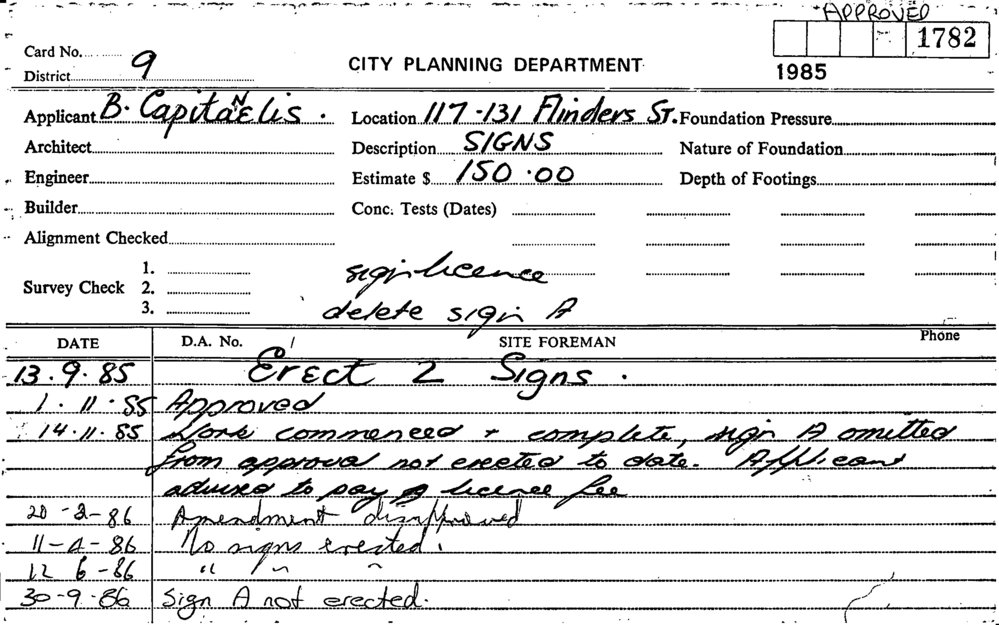 APPROVED
1782
1985
Card No.
District 9
CITY PLANNING DEPARTMENT
Applicant B. Capitanelis. Location 117-131 Flinders St. Foundation Pressure
Architect Description SIGNS Nature of Foundation
Engineer Estimate $ 150.00 Depth of Footings
Builder Conc. Tests (Dates)
Alignment Checked
1. sign licence
Survey Check 2.
3. delete sign A
DATE D.A. No. / SITE FOREMAN Phone
13.9.85 Erect 2 Signs.
1.11.85 Approved
14.11.85 Work commenced + complete, sign A omitted
from approval not erected to date. Applicant
advised to pay licence fee
20-2-86 Amendment disapproved
11-4-86 No signs erected.
12 6-86 " " "
30-9-86 Sign A not erected.